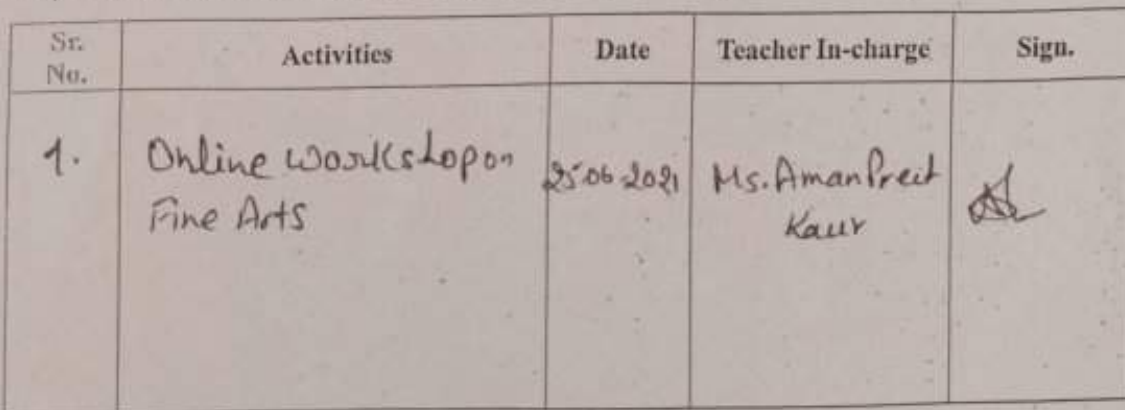 Sr. No. Activities Date Teacher In-charge Sign.
1. Online Workshop on 25.06.2021 Ms. Aman Preet
Fine Arts Kaur